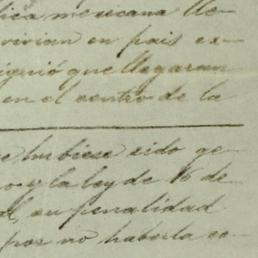 lica mexicana lle-
vivian en pais ex-
signió que llegaran
en el centro de la
e hubiese sido ge-
o y la ley de 16 de
su penalidad
por no haberla co-